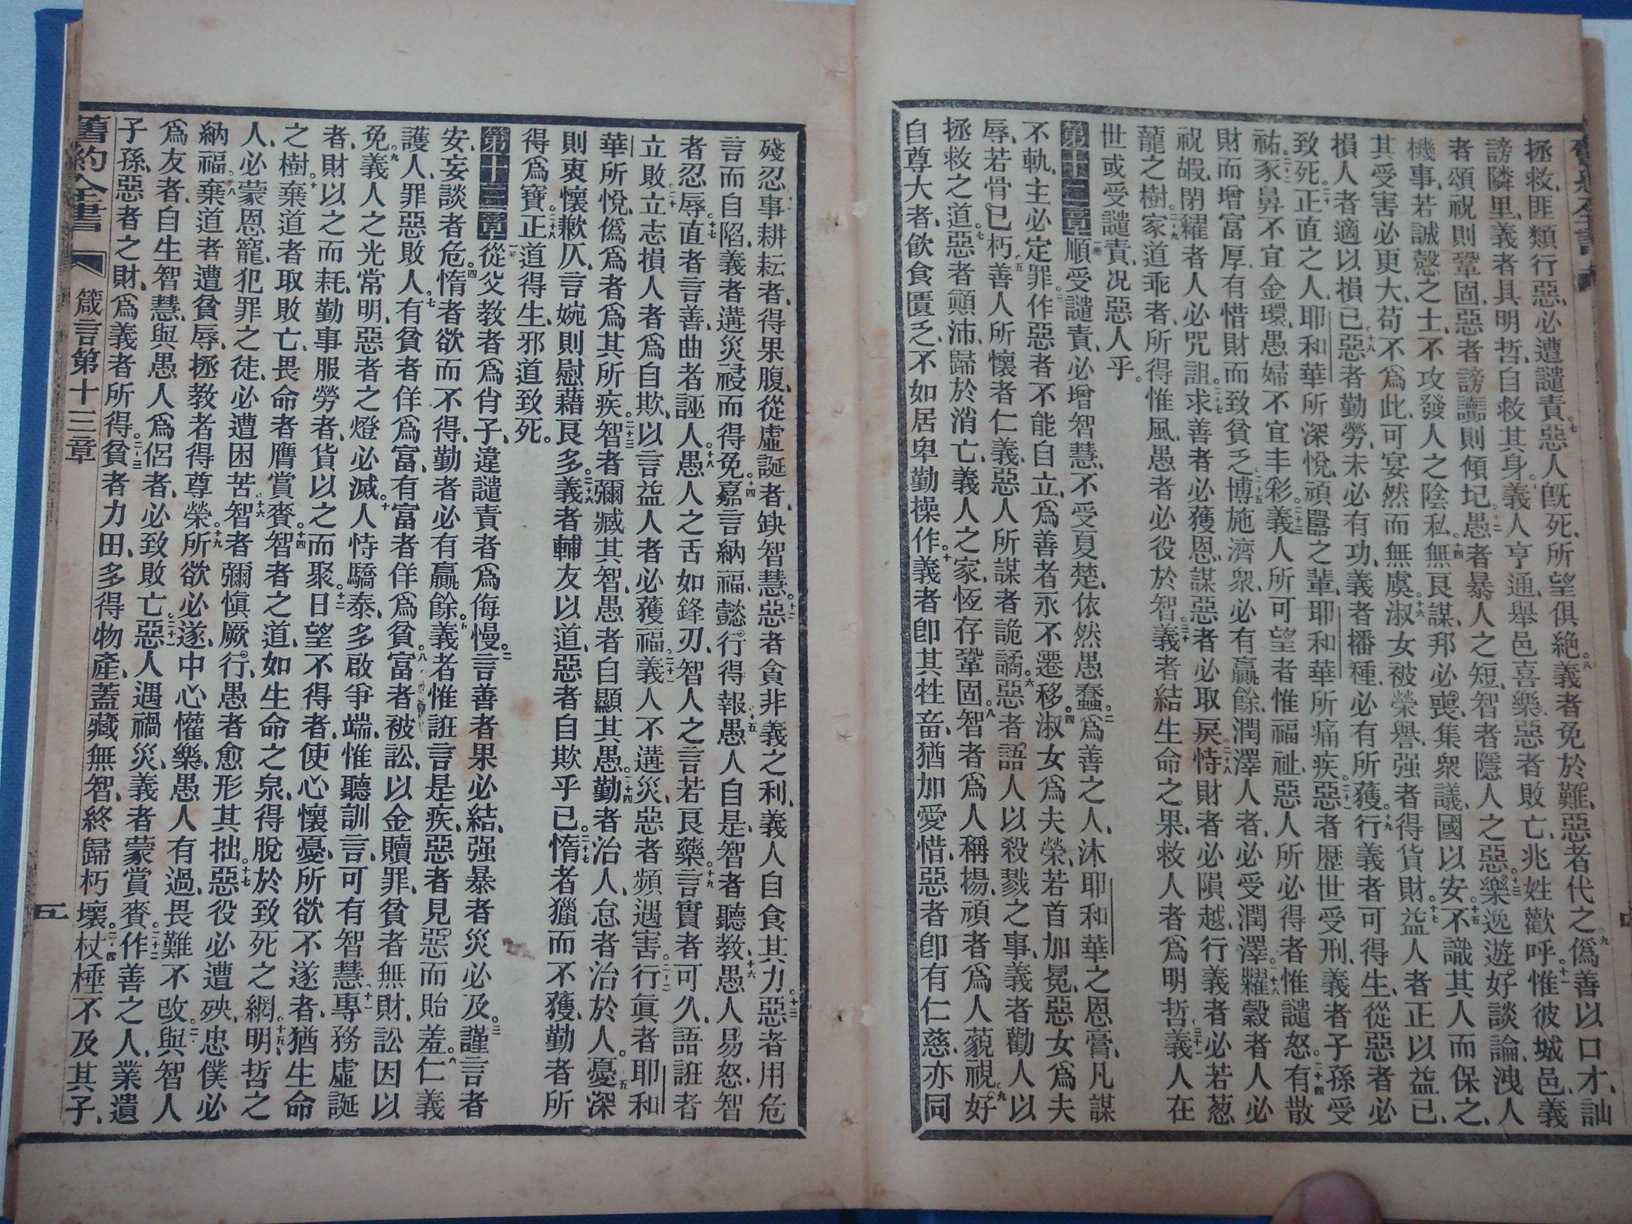 拯救、匪類行惡、必遭譴責。七惡人旣死、所望俱絶。八義者免於難、惡者代之。九僞善以口才、訕
謗隣里、義者具明哲、自救其身。十義人亨通、舉邑喜樂、惡者敗亡、兆姓歡呼。十一惟彼城邑、義
者頌祝則鞏固、惡者謗讟則傾圮。十二愚者暴人之短、智者隱人之惡。十三樂逸遊、好談論、洩人
機事、若誠慤之士、不攻發人之陰私。十四無良謀、邦必喪、集衆議、國以安。十五不識其人而保之、
其受害必更大、苟不爲此、可宴然而無虞。十六淑女被榮譽、强者得貨財。十七益人者正以益已、
損人者適以損已。十八惡者勤勞、未必有功、義者播種、必有所獲。十九行義者可得生、從惡者必
致死。二十正直之人、耶和華所深悅、頑囂之輩、耶和華所痛疾。二十一惡者歷世受刑、義者子孫受
祐。二十二豕鼻不宜金環、愚婦不宜丰彩。二十三義人所可望者惟福祉、惡人所必得者惟譴怒。二十四有散
財而增富厚、有惜財而致貧乏。二十五博施濟衆、必有贏餘、潤澤人者、必受潤澤。二十六糶穀者人必
祝嘏、閉糶者人必咒詛。二十七求善者必獲恩、謀惡者必取戾。二十八恃財者必隕越、行義者必若葱
蘢之樹。二十九家道乖者、所得惟風、愚者必役於智。三十義者結生命之果、救人者爲明哲。三十一義人在
世、或受譴責、况惡人乎。
第十二章一節順受譴責、必增智慧、不受夏楚、依然愚蠢。二爲善之人、沐耶和華之恩膏、凡謀
不軌、主必定罪。三作惡者不能自立、爲善者永不遷移。四淑女爲夫榮、若首加冕、惡女爲夫
辱、若骨已朽。五善人所懷者仁義、惡人所謀者詭譎。六惡者語人以殺戮之事、義者勸人以
拯救之道。七惡者顚沛、歸於消亡、義人之家、恆存鞏固。八智者爲人稱揚、頑者爲人藐視。九好
自尊大者、飲食匱乏、不如居卑勤操作。十義者卽其牲畜、猶加愛惜、惡者卽有仁慈、亦同
殘忍。十一事耕耘者、得果腹、從虛誕者、缺智慧。十二惡者貪非義之利、義人自食其力。十三惡者用危
言而自陷、義者遘災祲而得免。十四嘉言納福、懿行得報。十五愚人自是、智者聽教。十六愚人易怒、智
者忍辱。十七直者言善、曲者誣人。十八愚人之舌如鋒刃、智人之言若良藥。十九言實者可久、語誑者
立敗。二十立志損人者爲自欺、以言益人者必獲福。二十一義人不遘災、惡者頻遇害。二十二行眞者、耶和
華所悅、僞爲者、爲其所疾。二十三智者彌藏其智、愚者自顯其愚。二十四勤者治人、怠者治於人。二十五憂深
則衷懷歉仄、言婉則慰藉良多。二十六義者輔友以道、惡者自欺乎已。二十七惰者獵而不獲、勤者所
得爲寶。二十八正道得生、邪道致死。
第十三章一節從父教者爲肖子、違譴責者爲侮慢。二言善者果必結、强暴者災必及。三謹言者
安、妄談者危。四惰者欲而不得、勤者必有贏餘。五義者惟誑言是疾、惡者見惡而貽羞。六仁義
護人、罪惡敗人。七有貧者佯爲富、有富者佯爲貧。八富者被訟、以金贖罪、貧者無財、訟因以
免。九義人之光常明、惡者之燈必滅。十人恃驕泰、多啟爭端、惟聽訓言、可有智慧。十一專務虛誕
者、財以之而耗、勤事服勞者、貨以之而聚。十二日望不得者、使心懷憂、所欲不遂者、猶生命
之樹。十三棄道者取敗亡、畏命者膺賞賚。十四智者之道、如生命之泉、得脫於致死之網。十五明哲之
人、必蒙恩寵、犯罪之徒、必遭困苦。十六智者彌愼厥行、愚者愈形其拙。十七惡役必遭殃、忠僕必
納福。十八棄道者遭貧辱、拯教者得尊榮。十九所欲必遂、中心懽樂、愚人有過、畏難不改。二十與智人
爲友者、自生智慧、與愚人爲侶者、必致敗亡。二十一惡人遇禍災、義者蒙賞賚。二十二作善之人、業遺
子孫、惡者之財、爲義者所得。二十三貧者力田、多得物產、蓋藏無智、終歸朽壞。二十四杖棰不及其子、
舊約全書 箴言第十三章 五